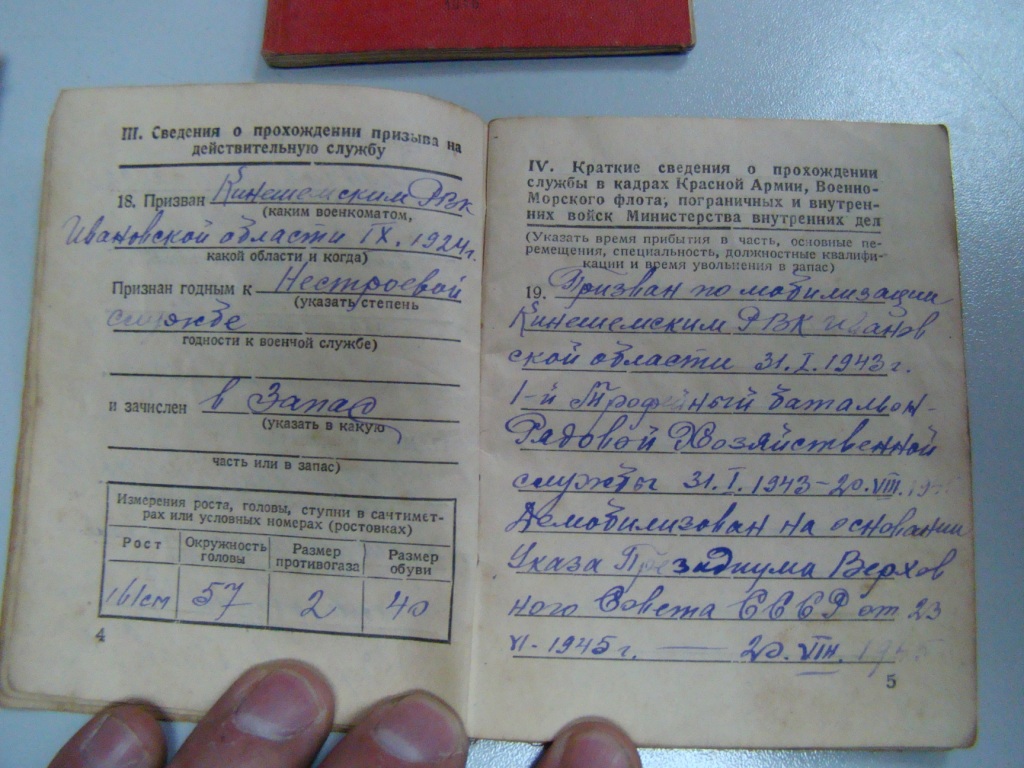 III. Сведения о прохождении призыва на
действительную службу
18. Призван Кинешемским РВК
(каким военкоматом,
Ивановской области IX. 1924 г.
какой области и когда)
Признан годным к Нестроевой
(указать степень
службе
годности к военчой службе)
и зачислен в Запас
(указать в какую
часть или в запас)
Измерения роста, головы, ступни в сачтимет-
рах или условных номерах (ростовках)
Рост Окружность головы Размер противогаза Размер обуви
161 см 57 2 40
4
IV. Краткие сведения о прохождении
службы в кадрах Красной Армии, Военно-
Морского флота, пограничных и внутрен-
них войск Министерства внутренних дел
(Указать время прибытия в часть, основные пе-
ремещения, специальность, должностные квалифи-
кации и время увольнения в запас)
19. Призван по мобилизации
Кинешемским РВК Иванов
ской области 31. I. 1943 г.
1-й Трофейный баталион-
Рядовой Хозяйственной
службы 31. I. 1943 – 20. VIII. 1945
Демобилизован на основании
Указа Президиума Верхов
ного Совета СССР от 23
VI - 1945 г. — 20. VIII. 1945
5